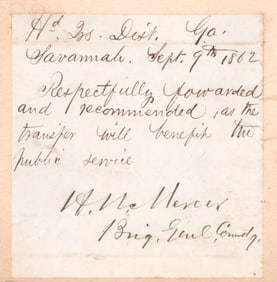 Hd. Qrs. Dist. Ga.
Savannah. Sept. 9th 1862
Respectfully forwarded
and recommended, as the
transfer will benefit the
public service
H. W. Mercer
Brig. Genl. Comdg.